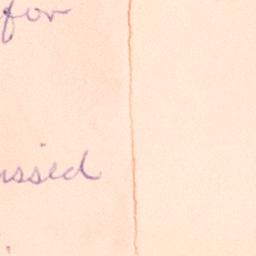 for
ussed